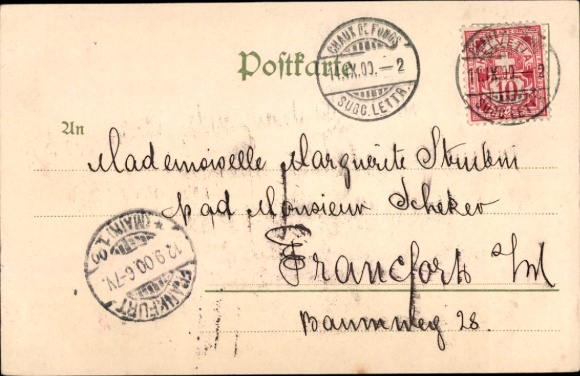 CHAUX DE FONDS
11.IX.00.–2
SUCC. LETTR.
HELVETIA
10
Postkarte
An
Mademoiselle Marguerite
pad Monsieur Scheker
Francfort s/M
Baumweg 28.
FRANKFURT (MAIN) 1.
12.9.00.6-7V.